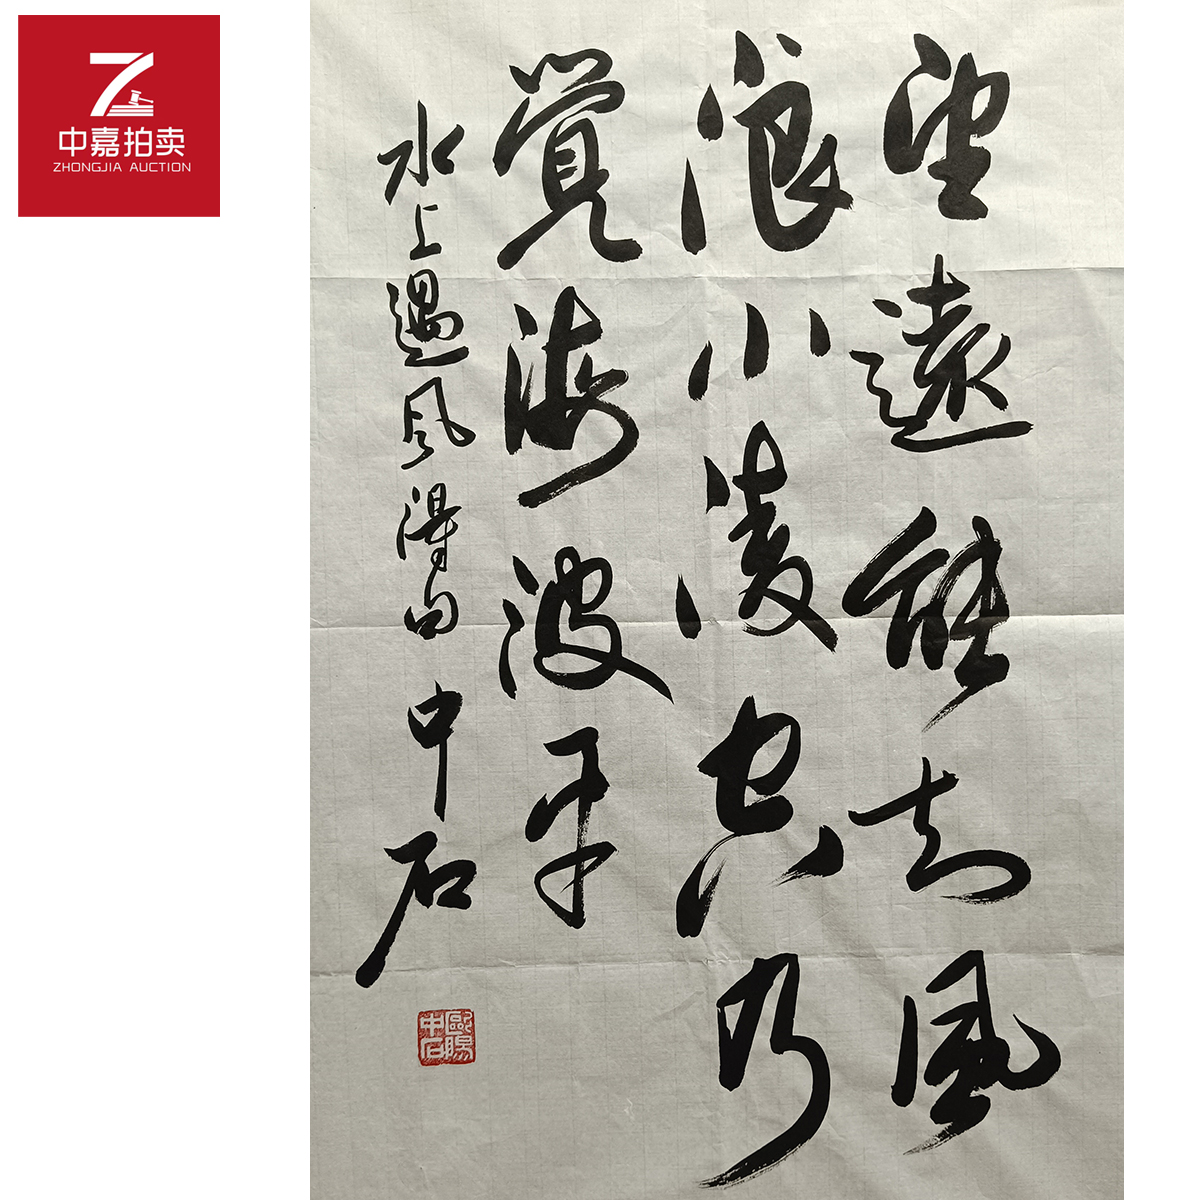 中嘉拍卖
ZHONGJIA AUCTION
望遠能知風
浪小凌空乃
覺海波平
水上遇风得句 中石
歐陽中石